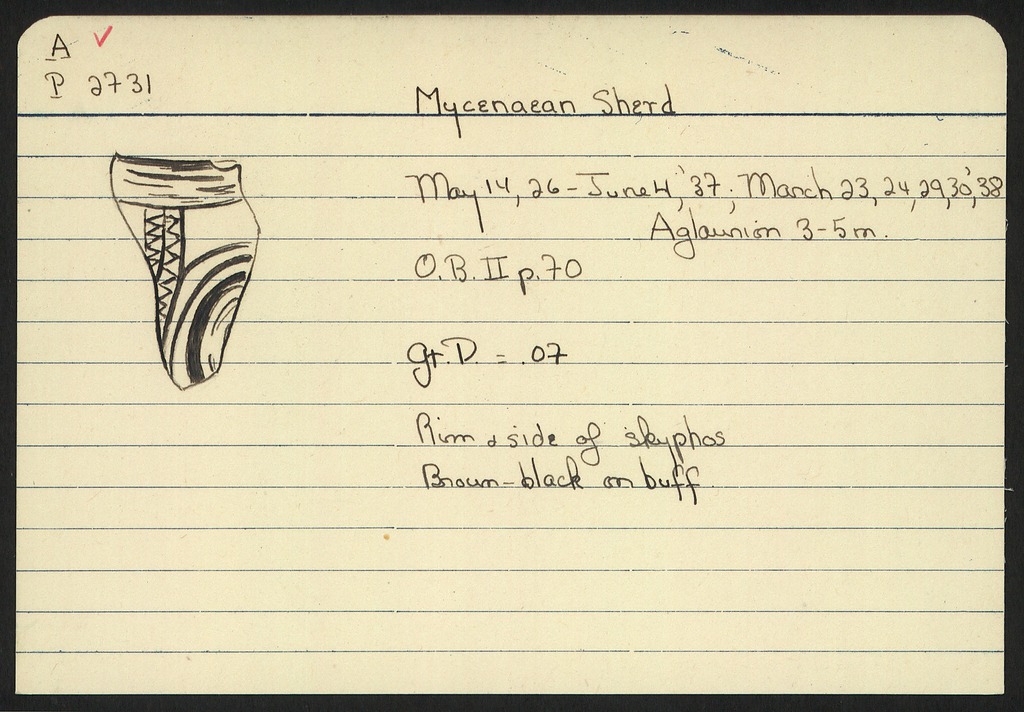 A ✓
P 2731
Mycenaean Sherd
May 14, 26 - June 4, '37; March 23, 24, 29, 30, '38
Aglaurion 3-5m.
O.B. II p. 70
gr. D. = .07
Rim & side of skyphos
Brown-black on buff